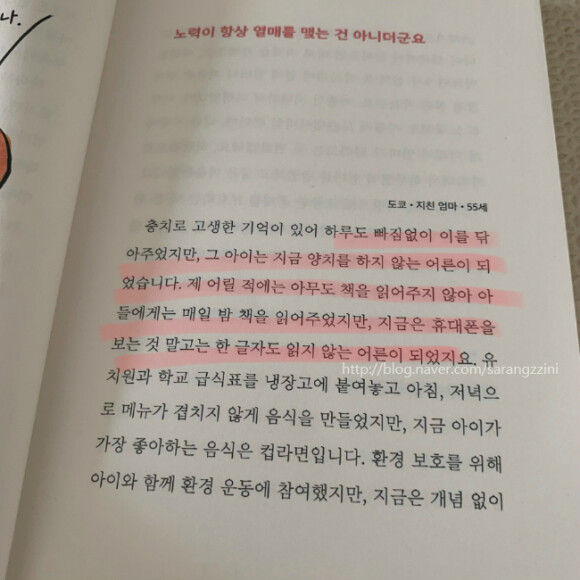 나.
노력이 항상 열매를 맺는 건 아니더군요
도쿄 • 지친 엄마 • 55세
충치로 고생한 기억이 있어 하루도 빠짐없이 이를 닦
아주었지만, 그 아이는 지금 양치를 하지 않는 어른이 되
었습니다. 제 어릴 적에는 아무도 책을 읽어주지 않아 아
들에게는 매일 밤 책을 읽어주었지만, 지금은 휴대폰을
보는 것 말고는 한 글자도 읽지 않는 어른이 되었지요. 유
http://blog.naver.com/sarangzzini
치원과 학교 급식표를 냉장고에 붙여놓고 아침, 저녁으
로 메뉴가 겹치지 않게 음식을 만들었지만, 지금 아이가
가장 좋아하는 음식은 컵라면입니다. 환경 보호를 위해
아이와 함께 환경 운동에 참여했지만, 지금은 개념 없이